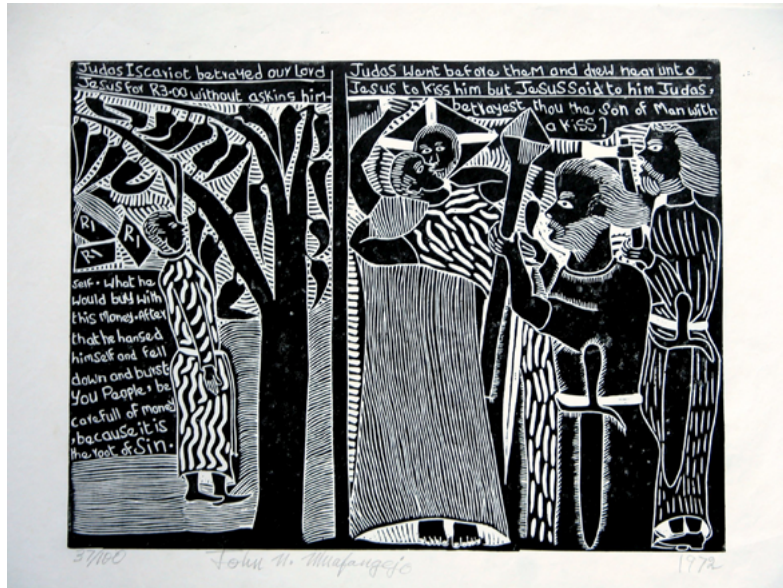 Judas Iscariot betrayed our Lord
Jesus for R3-00 without asking him-
R1
R1
R1
self. What he
would buy with
this Money. After
that he hansed
himself and fell
down and burst
You People, be
carefull of money
, because it is
the root of Sin.
Judas Went before them and drew near unto
Jesus to Kiss him but Jesus Said to him Judas,
betrayest thou the Son of Man with
a Kiss?
37/100
John N. Muafangejo
1972